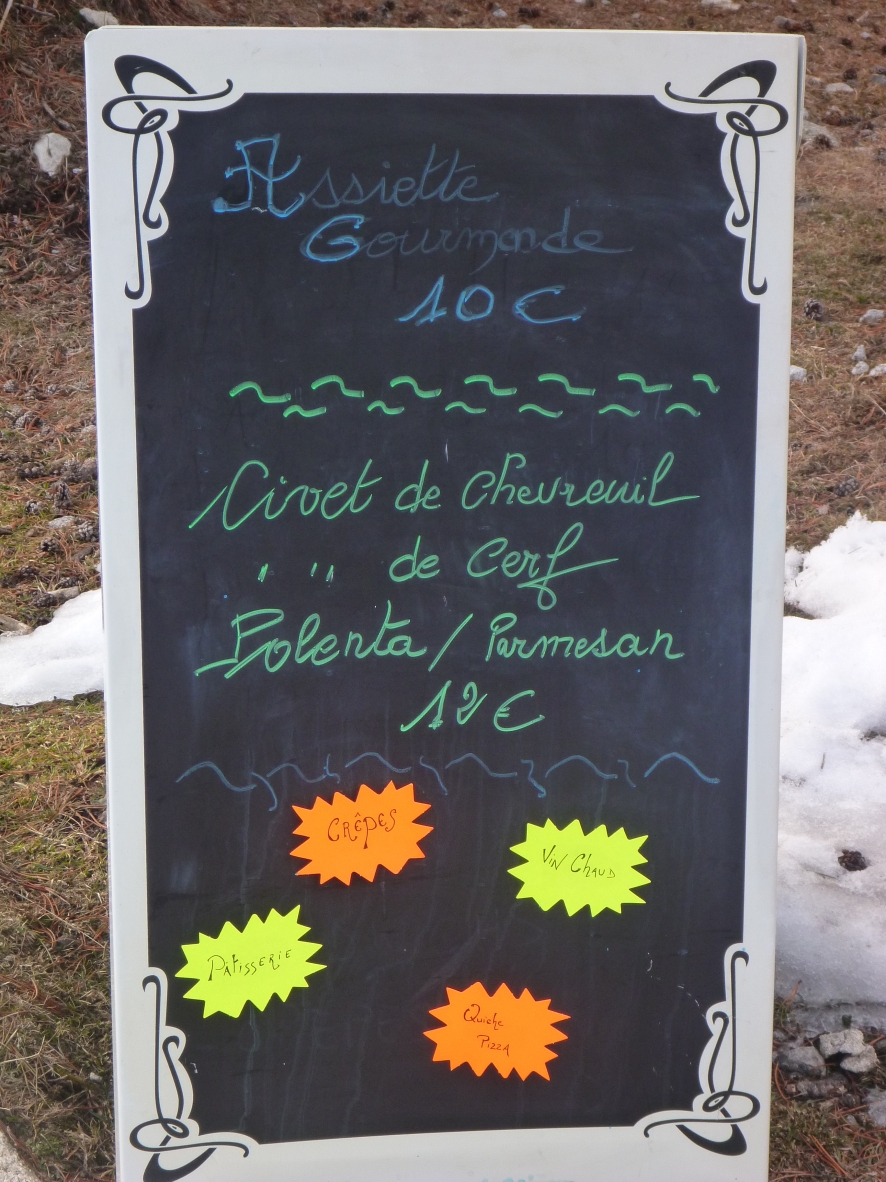 Assiette
Gourmande
10 €
Civet de Chevreuil
" " de Cerf
Polenta / Parmesan
12 €
CRÊPES
VIN CHAUD
PÂTISSERIE
Quiche
PIZZA